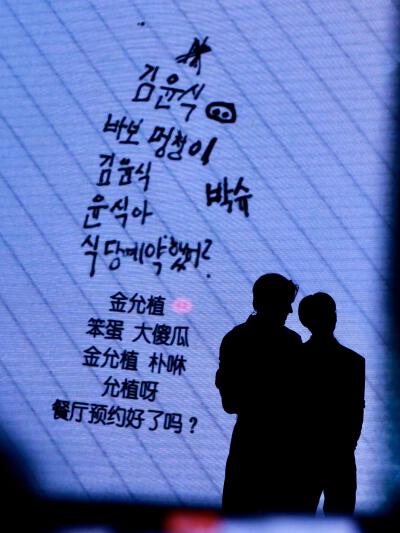 김윤식
바보 멍청이
김윤식 박슈
윤식아
식당예약했어?
金允植
笨蛋 大傻瓜
金允植 朴咻
允植呀
餐厅预约好了吗？